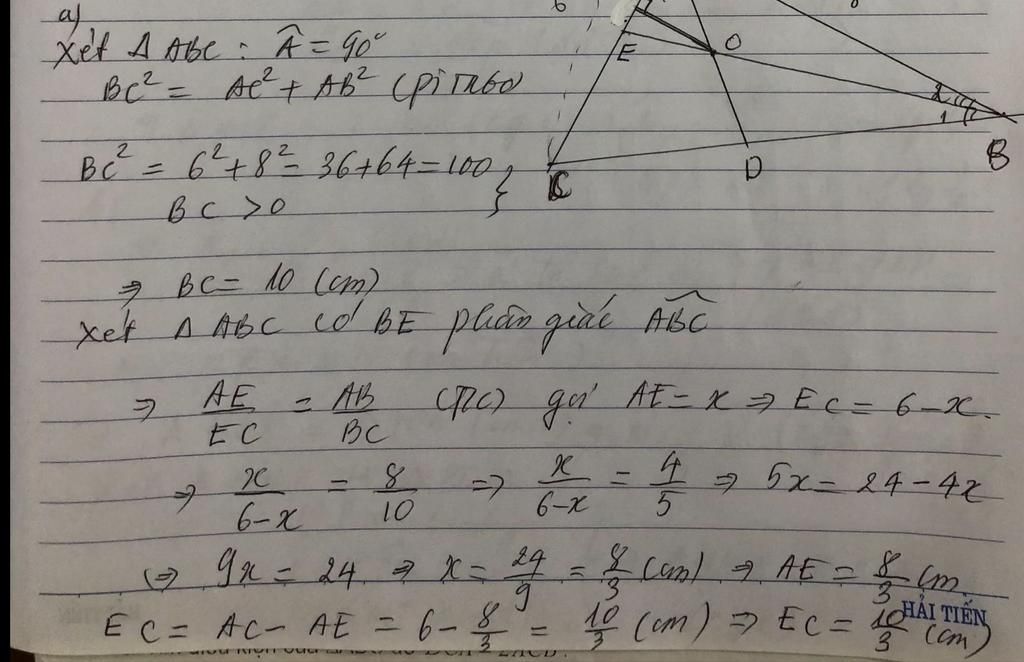 a)
Xét Δ ABC : Â = 90°
BC² = AC² + AB² (PiTago)
BC² = 6² + 8² = 36 + 64 = 100 }
BC > 0
⇒ BC = 10 (cm)
Xét Δ ABC có BE phân giác \widehat{ABC}
⇒ AE/EC = AB/BC (T/c) gọi AE = x ⇒ EC = 6 - x.
⇒ x/(6-x) = 8/10 ⇒ x/(6-x) = 4/5 ⇒ 5x = 24 - 4x
(⇒ 9x = 24 ⇒ x = 24/9 = 8/3 (cm) ⇒ AE = 8/3 cm
EC = AC - AE = 6 - 8/3 = 10/3 (cm) ⇒ EC = 10/3 (cm)
HẢI TIẾN
6
8
E
O
2
1
C
D
B